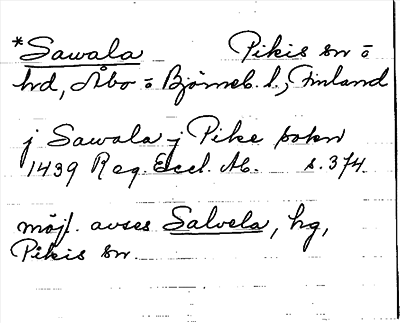 *Sawala Pikis sn o
hd, Åbo o Björneb. l., Finland
j Sawala j Pike sokn
1439 Reg. Eccl. Ab. s. 374.
möjl. avses Salvela, hg,
Pikis sn